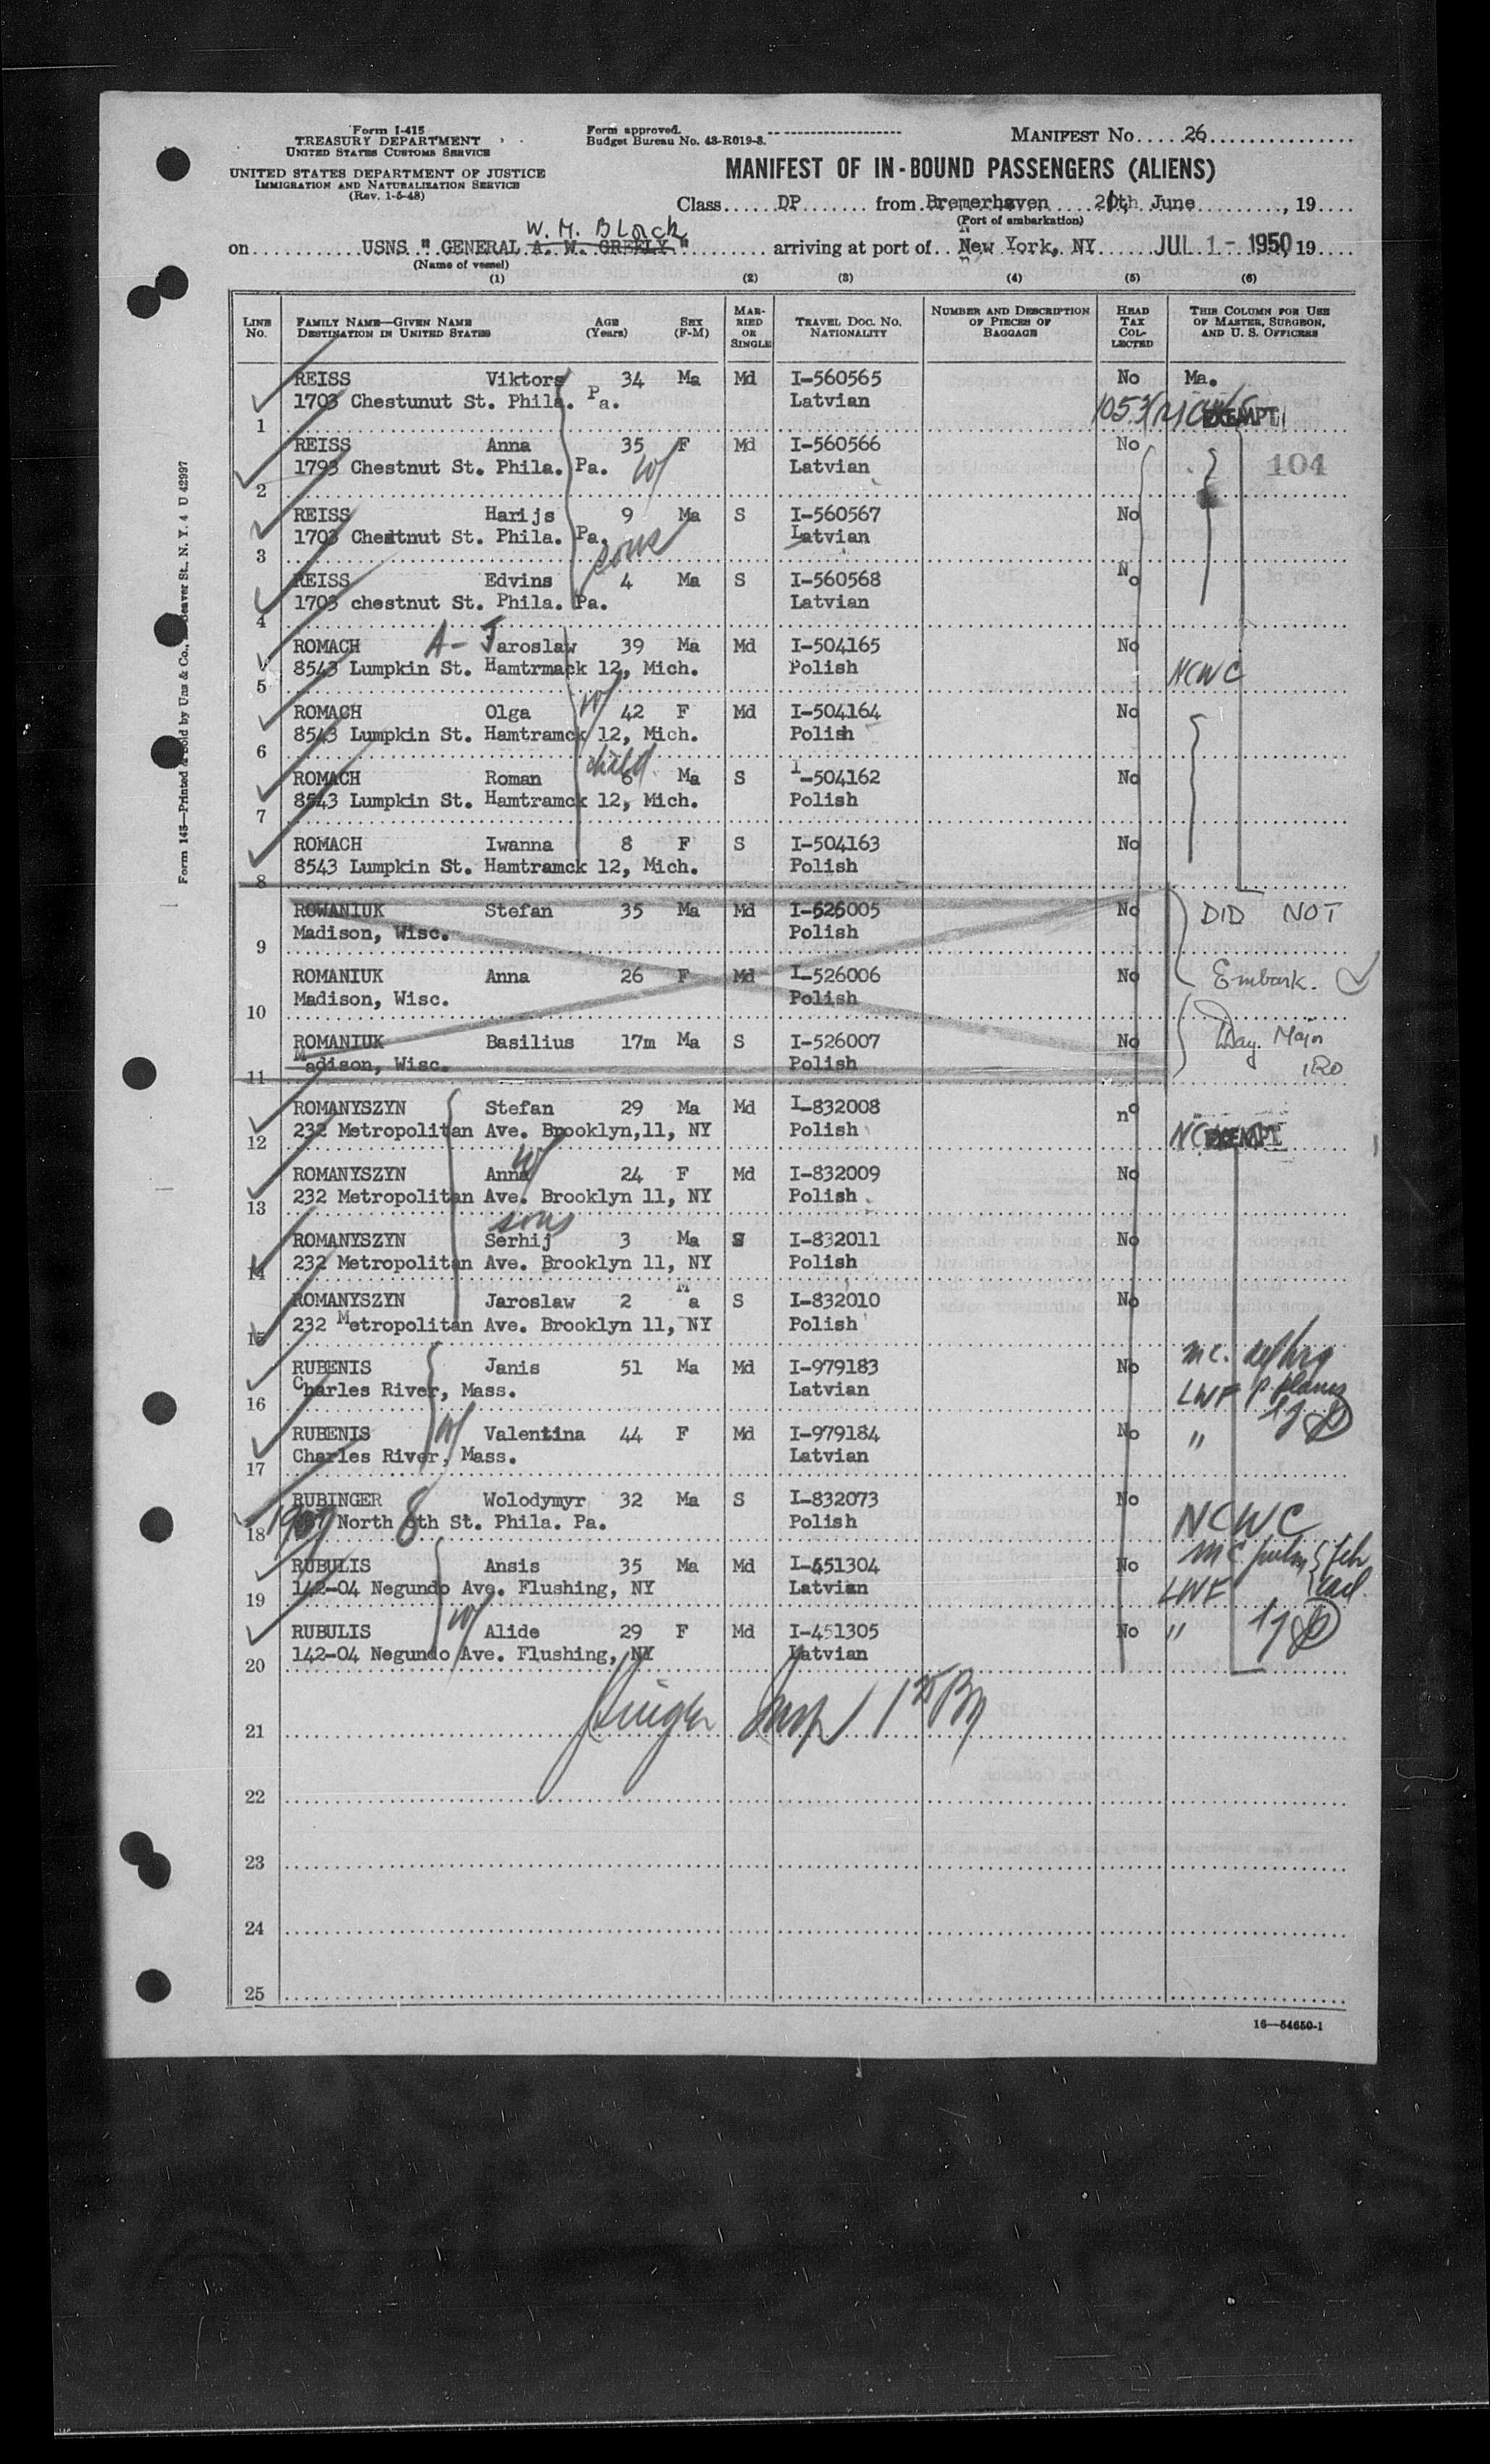 Form I-415
TREASURY DEPARTMENT
UNITED STATES CUSTOMS SERVICE
UNITED STATES DEPARTMENT OF JUSTICE
IMMIGRATION AND NATURALIZATION SERVICE
(Rev. 1-5-48)
Form approved.
Budget Bureau No. 43-R019-3.
MANIFEST No. 26
MANIFEST OF IN-BOUND PASSENGERS (ALIENS)
Class DP from Bremerhaven 20th June, 19
(Port of embarkation)
W. M. Black
on USNS " GENERAL A. W. GREELY " arriving at port of New York, NY JUL 1 - 1950, 19
(Name of vessel)
(1) (2) (3) (4) (5) (6)
LINE No. FAMILY NAME—GIVEN NAME DESTINATION IN UNITED STATES AGE (Years) SEX (F-M) MARRIED OR SINGLE TRAVEL DOC. NO. NATIONALITY NUMBER AND DESCRIPTION OF PIECES OF BAGGAGE HEAD TAX COLLECTED THIS COLUMN FOR USE OF MASTER, SURGEON, AND U. S. OFFICERS
REISS Viktors 34 Ma Md I-560565 No Ma.
1 1703 Chestunut St. Phila. Pa. Latvian EXEMPT
REISS Anna 35 F Md I-560566 No
2 1793 Chestnut St. Phila. Pa. W Latvian 104
REISS Harijs 9 Ma S I-560567 No
3 1703 Chedtnut St. Phila. Pa. sons Latvian
REISS Edvins 4 Ma S I-560568 No
4 1703 chestnut St. Phila. Pa. Latvian
ROMACH A- Jaroslaw 39 Ma Md I-504165 No
5 8543 Lumpkin St. Hamtrmack 12, Mich. Polish NCWC
ROMACH Olga W 42 F Md I-504164 No
6 8543 Lumpkin St. Hamtramck 12, Mich. Polish
ROMACH Roman child 6 Ma S I-504162 No
7 8543 Lumpkin St. Hamtramck 12, Mich. Polish
ROMACH Iwanna 8 F S I-504163 No
8 8543 Lumpkin St. Hamtramck 12, Mich. Polish
ROWANIUK Stefan 35 Ma Md I-526005 No DID NOT
9 Madison, Wisc. Polish
ROMANIUK Anna 26 F Md I-526006 No Embark.
10 Madison, Wisc. Polish
ROMANIUK Basilius 17m Ma S I-526007 No Major
11 Madison, Wisc. Polish IRO
ROMANYSZYN Stefan 29 Ma Md I-832008 no
12 232 Metropolitan Ave. Brooklyn,11, NY Polish EXEMPT
ROMANYSZYN Anna W 24 F Md I-832009 No
13 232 Metropolitan Ave. Brooklyn 11, NY Polish
sons
ROMANYSZYN Serhij 3 Ma S I-832011 No
14 232 Metropolitan Ave. Brooklyn 11, NY Polish
ROMANYSZYN Jaroslaw 2 Ma S I-832010 No
15 232 Metropolitan Ave. Brooklyn 11, NY Polish
RUBENIS Janis 51 Ma Md I-979183 No
16 Charles River, Mass. Latvian LWF
RUBENIS W Valentina 44 F Md I-979184 No "
17 Charles River, Mass. Latvian
RUBINGER Wolodymyr 32 Ma S I-832073 No
18 North 8th St. Phila. Pa. Polish NCWC
RUBULIS Ansis 35 Ma Md I-451304 No
19 142-04 Negundo Ave. Flushing, NY Latvian LWF
RUBULIS W Alide 29 F Md I-451305 No "
20 142-04 Negundo Ave. Flushing, NY Latvian
21
22
23
24
25
16—54650-1